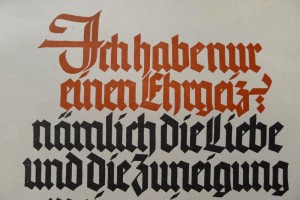 Ich habe nur
einen Ehrgeiz?
nämlich die Liebe
und die Zuneigung